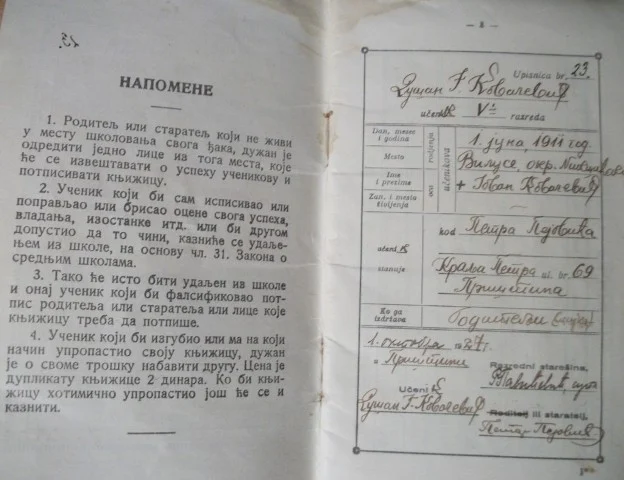 НАПОМЕНЕ
1. Родитељ или старатељ који не живи
у месту школовања свога ђака, дужан је
одредити једно лице из тога места, које
ће се извештавати о успеху ученикову и
потписивати књижицу.
2. Ученик који би сам исписивао или
поправљао или брисао оцене свога успеха,
владања, изостанке итд. или би другом
допустио да то чини, казниће се удаље-
њем из школе, на основу чл. 31. Закона о
средњим школама.
3. Тако ће исто бити удаљен из школе
и онај ученик који би фалсификовао пот-
пис родитеља или старатеља или лице које
књижицу треба да потпише.
4. Ученик који би изгубио или ма на који
начин упропастио своју књижицу, дужан
је о своме трошку набавити другу. Цена је
дупликату књижице 2 динара. Ко би књи-
жицу хотимично упропастио још ће се и
казнити.
Upisnica br. 23.
Душан Г. Ковачевић
učeni V razreda
Dan, mesec
i godina
rođenja
1. јуна 1911 год.
Mesto
Вилусе, окр.
Ime
i prezime
oca
učenikova
+ Јован Ковачевић
Zan. i mesto
življenja
kod Петра Педовића
učeni
stanuje
Краља Петра ul. br. 69
Приштина
Ko ga
izdržava
Родитељи
1. октобра 1927.
u Приштини
Razredni starešina,
Učeni
Душан Г. Ковачевић
Roditelj ili staratelj,
Петар Педовић